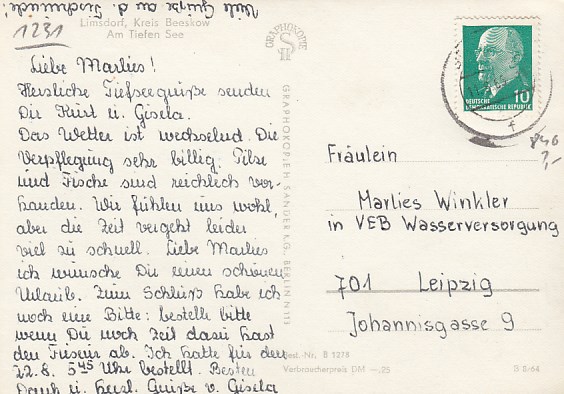 Viele Grüße an d. Tischrunde!
1231
Limsdorf, Kreis Beeskow
Am Tiefen See
Liebe Marlies!
Herzliche Tiefseegrüße senden
Dir Kurt u. Gisela.
Das Wetter ist wechselnd. Die
Verpflegung sehr billig. Pilze
und Fische sind reichlich vor-
handen. Wir fühlen uns wohl,
aber die Zeit vergeht leider
viel zu schnell. Liebe Marlies
ich wünsche Dir einen schönen
Urlaub. Zum Schluß habe ich
noch eine Bitte: bestelle bitte
wenn Du noch Zeit dazu hast
den Friseur ab. Ich hatte für den
22.8. 5⁴⁵ Uhr bestellt. Besten
Dank u. herzl. Grüße v. Gisela
GRAPHOKOPIE
GRAPHOKOPIE H. SANDER K.G., BERLIN N 113
Best.-Nr. B 1278
Verbraucherpreis DM -.25
DEUTSCHE
DEMOKRATISCHE REPUBLIK
10
f
Fräulein
Marlies Winkler
in VEB Wasserversorgung
701 Leipzig
Johannisgasse 9
B 8/64